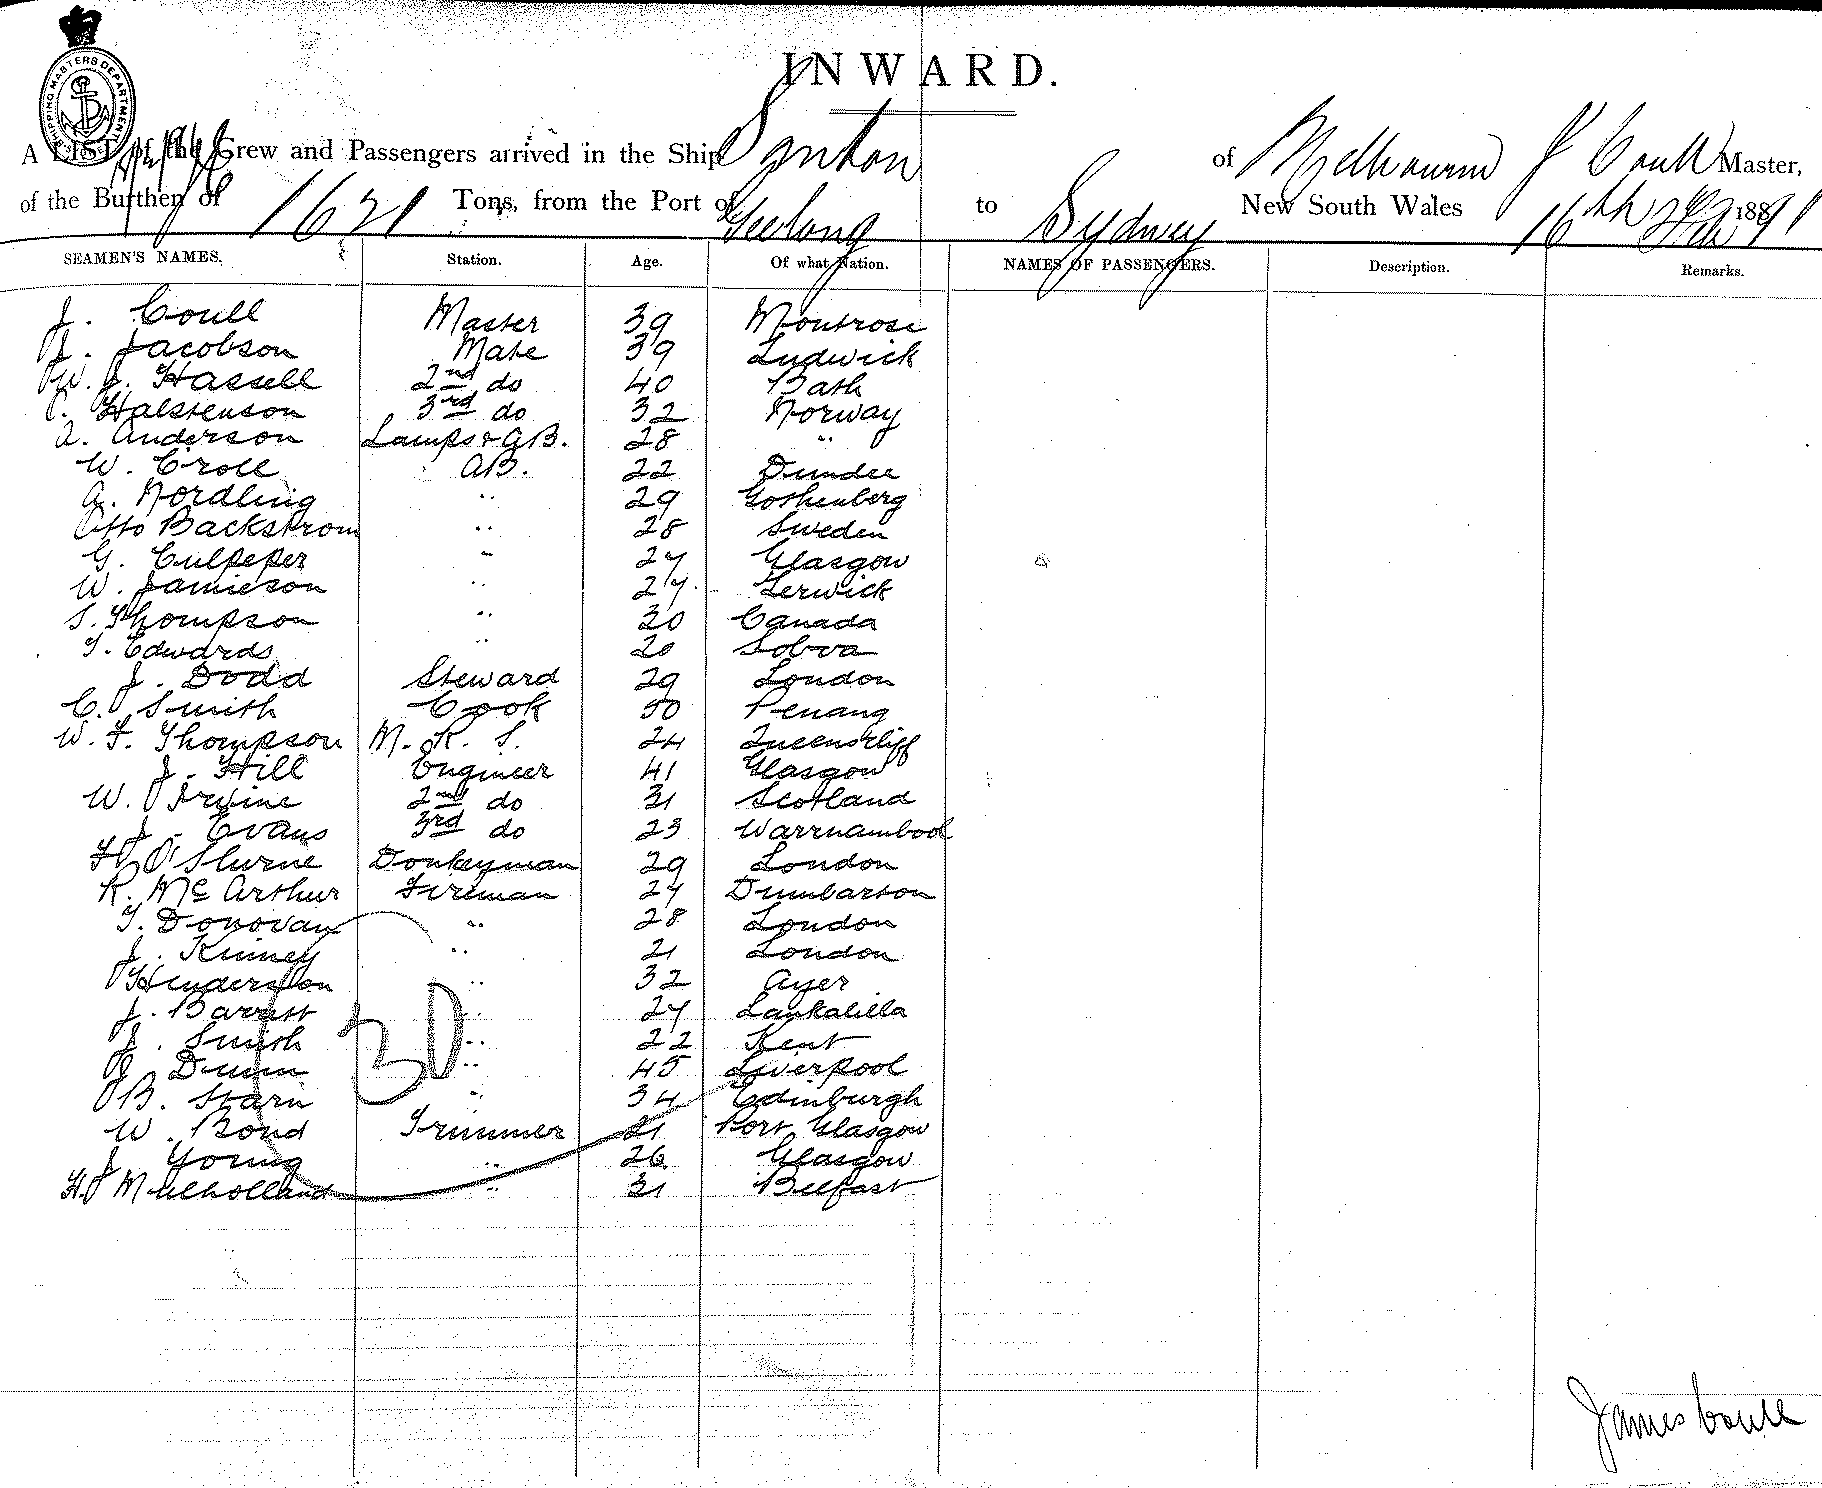 SHIPPING MASTERS DEPARTMENT
INWARD.
A LIST of the Crew and Passengers arrived in the Ship of Melbourne J Coull Master,
of the Burthen of 1621 Tons, from the Port of Geelong to Sydney New South Wales 16th 1891
SEAMEN'S NAMES. Station. Age. Of what Nation. NAMES OF PASSENGERS. Description. Remarks.
J. Coull Master 39 Montrose
J. Jacobson Mate 39 Ludwick
W. J. Hassell 2nd do 40 Bath
C. Halstenson 3rd do 32 Norway
A. Anderson Lamps & AB. 28 "
W. Croll AB. 22 Dundee
A. Nordling " 29 Gothenberg
Otto Backstrom " 28 Sweden
G. Culpeper " 27 Glasgow
W. Jamieson " 27 Lerwick
S. Thompson " 30 Canada
T. Edwards " 20
J. Dodd Steward 29 London
C. Smith Cook 50 Penang
W. F. Thompson M. R. S. 24 Queenscliff
J. Hill Engineer 41 Glasgow
W. Irvine 2nd do 31 Scotland
J. Evans 3rd do 23 Warrnambool
Donkeyman 29 London
R. McArthur Fireman 27 Dumbarton
T. Donovan " 28 London
J. Kinney " 21 London
Henderson " 32 Ayer
J. Barrett " 27 Lankalilla
J. Smith " 22 Kent
Dunn " 45 Liverpool
B. Starn " 34 Edinburgh
W. Bond Trimmer 21 Port Glasgow
J. Young " 26 Glasgow
H. Mulholland " 31 Belfast
30
James Coull